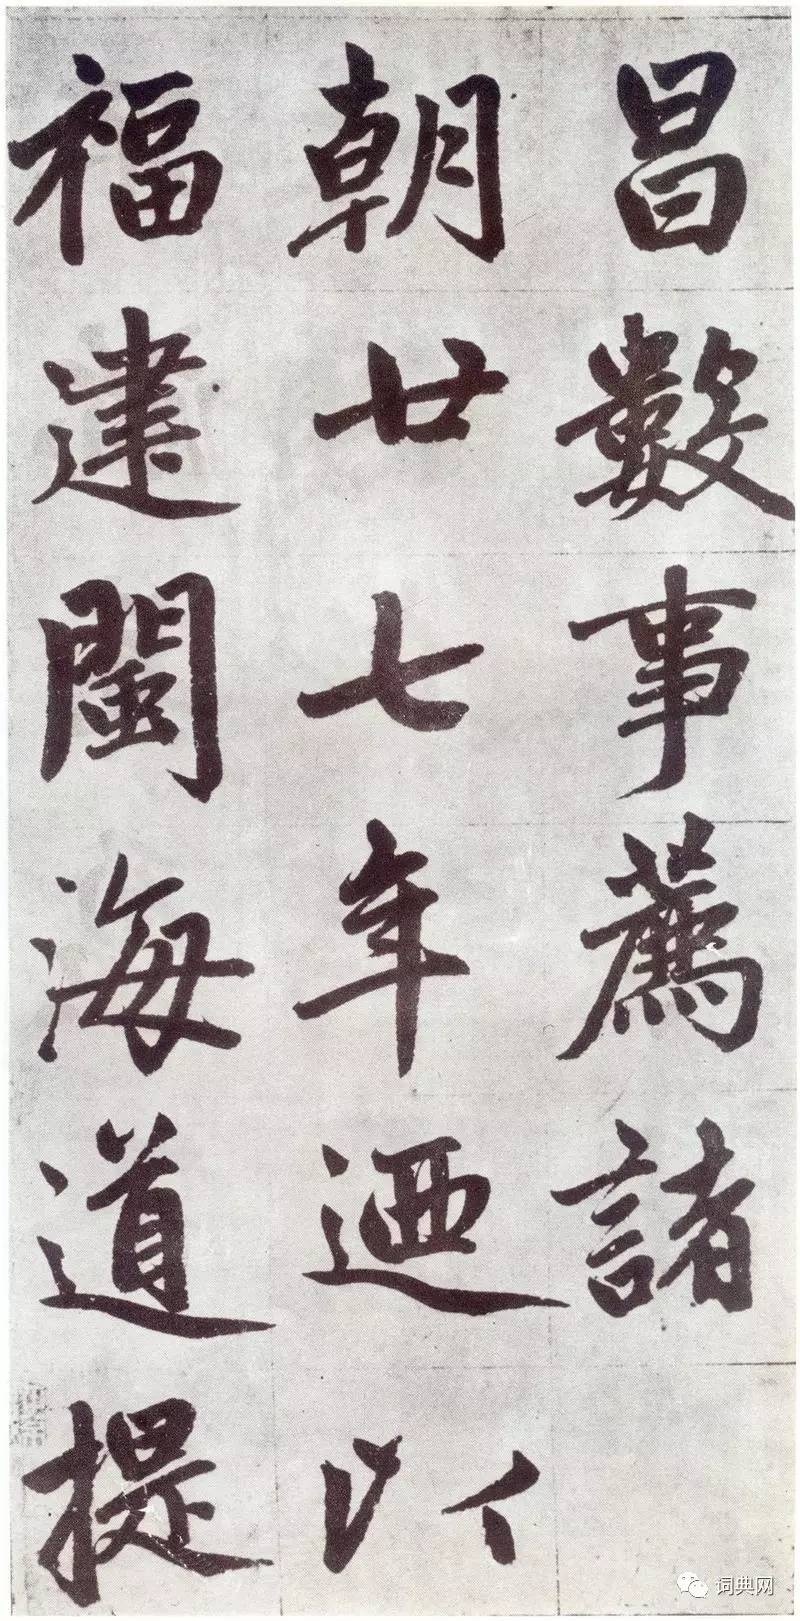 昌數事薦諸
朝廿七年迺以
福建閩海道提
词典网